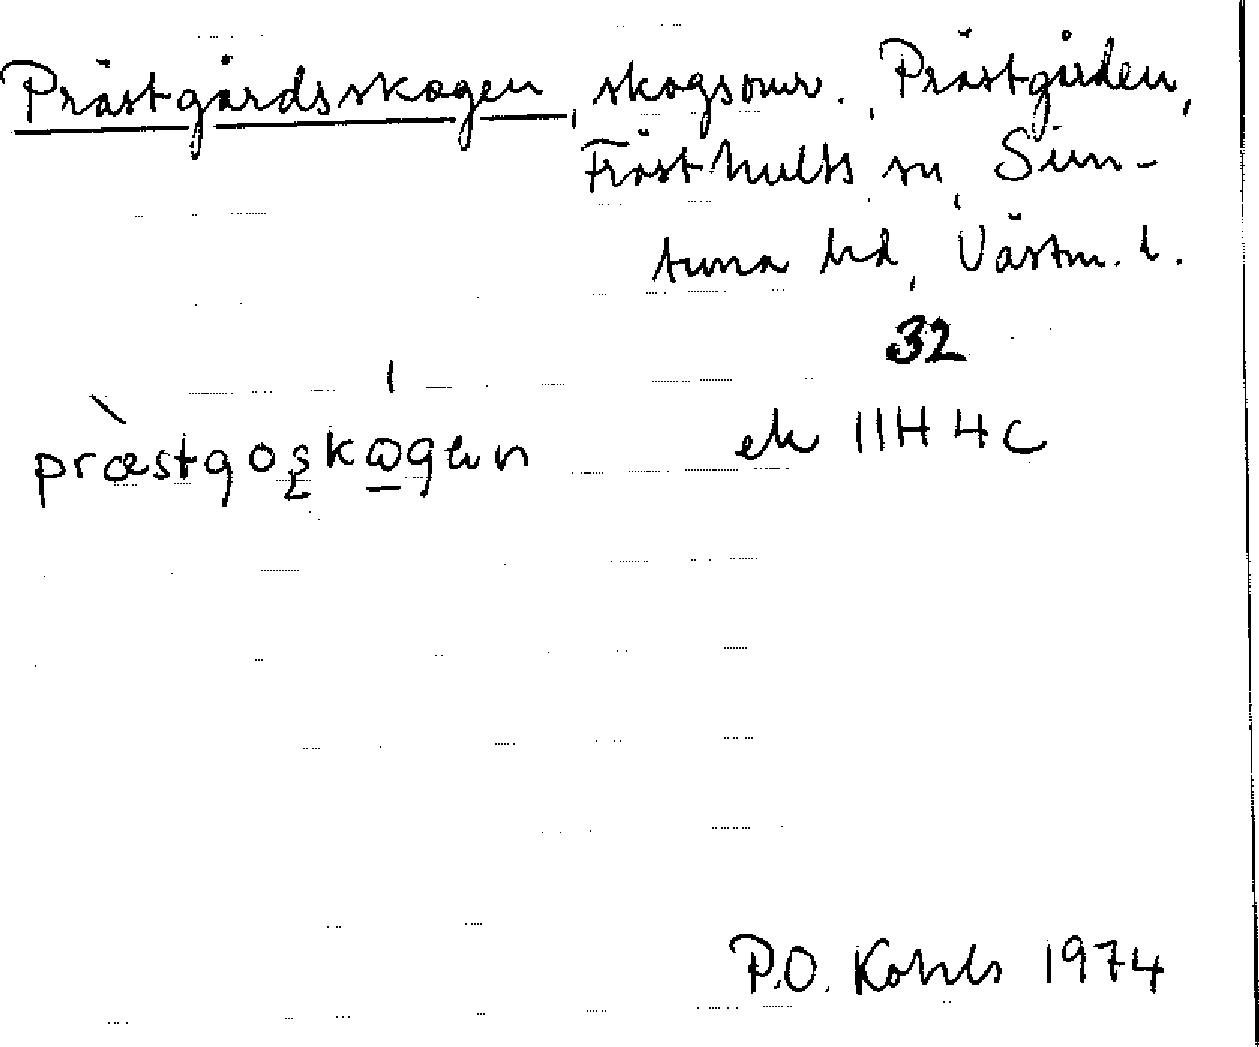 Prästgårdsskogen, skogsomr., Prästgården,
Frösthults sn, Sim-
tuna hd, Västm. l.
32
præstgoskωgən
ek 11H 4c
P.O. Kohls 1974